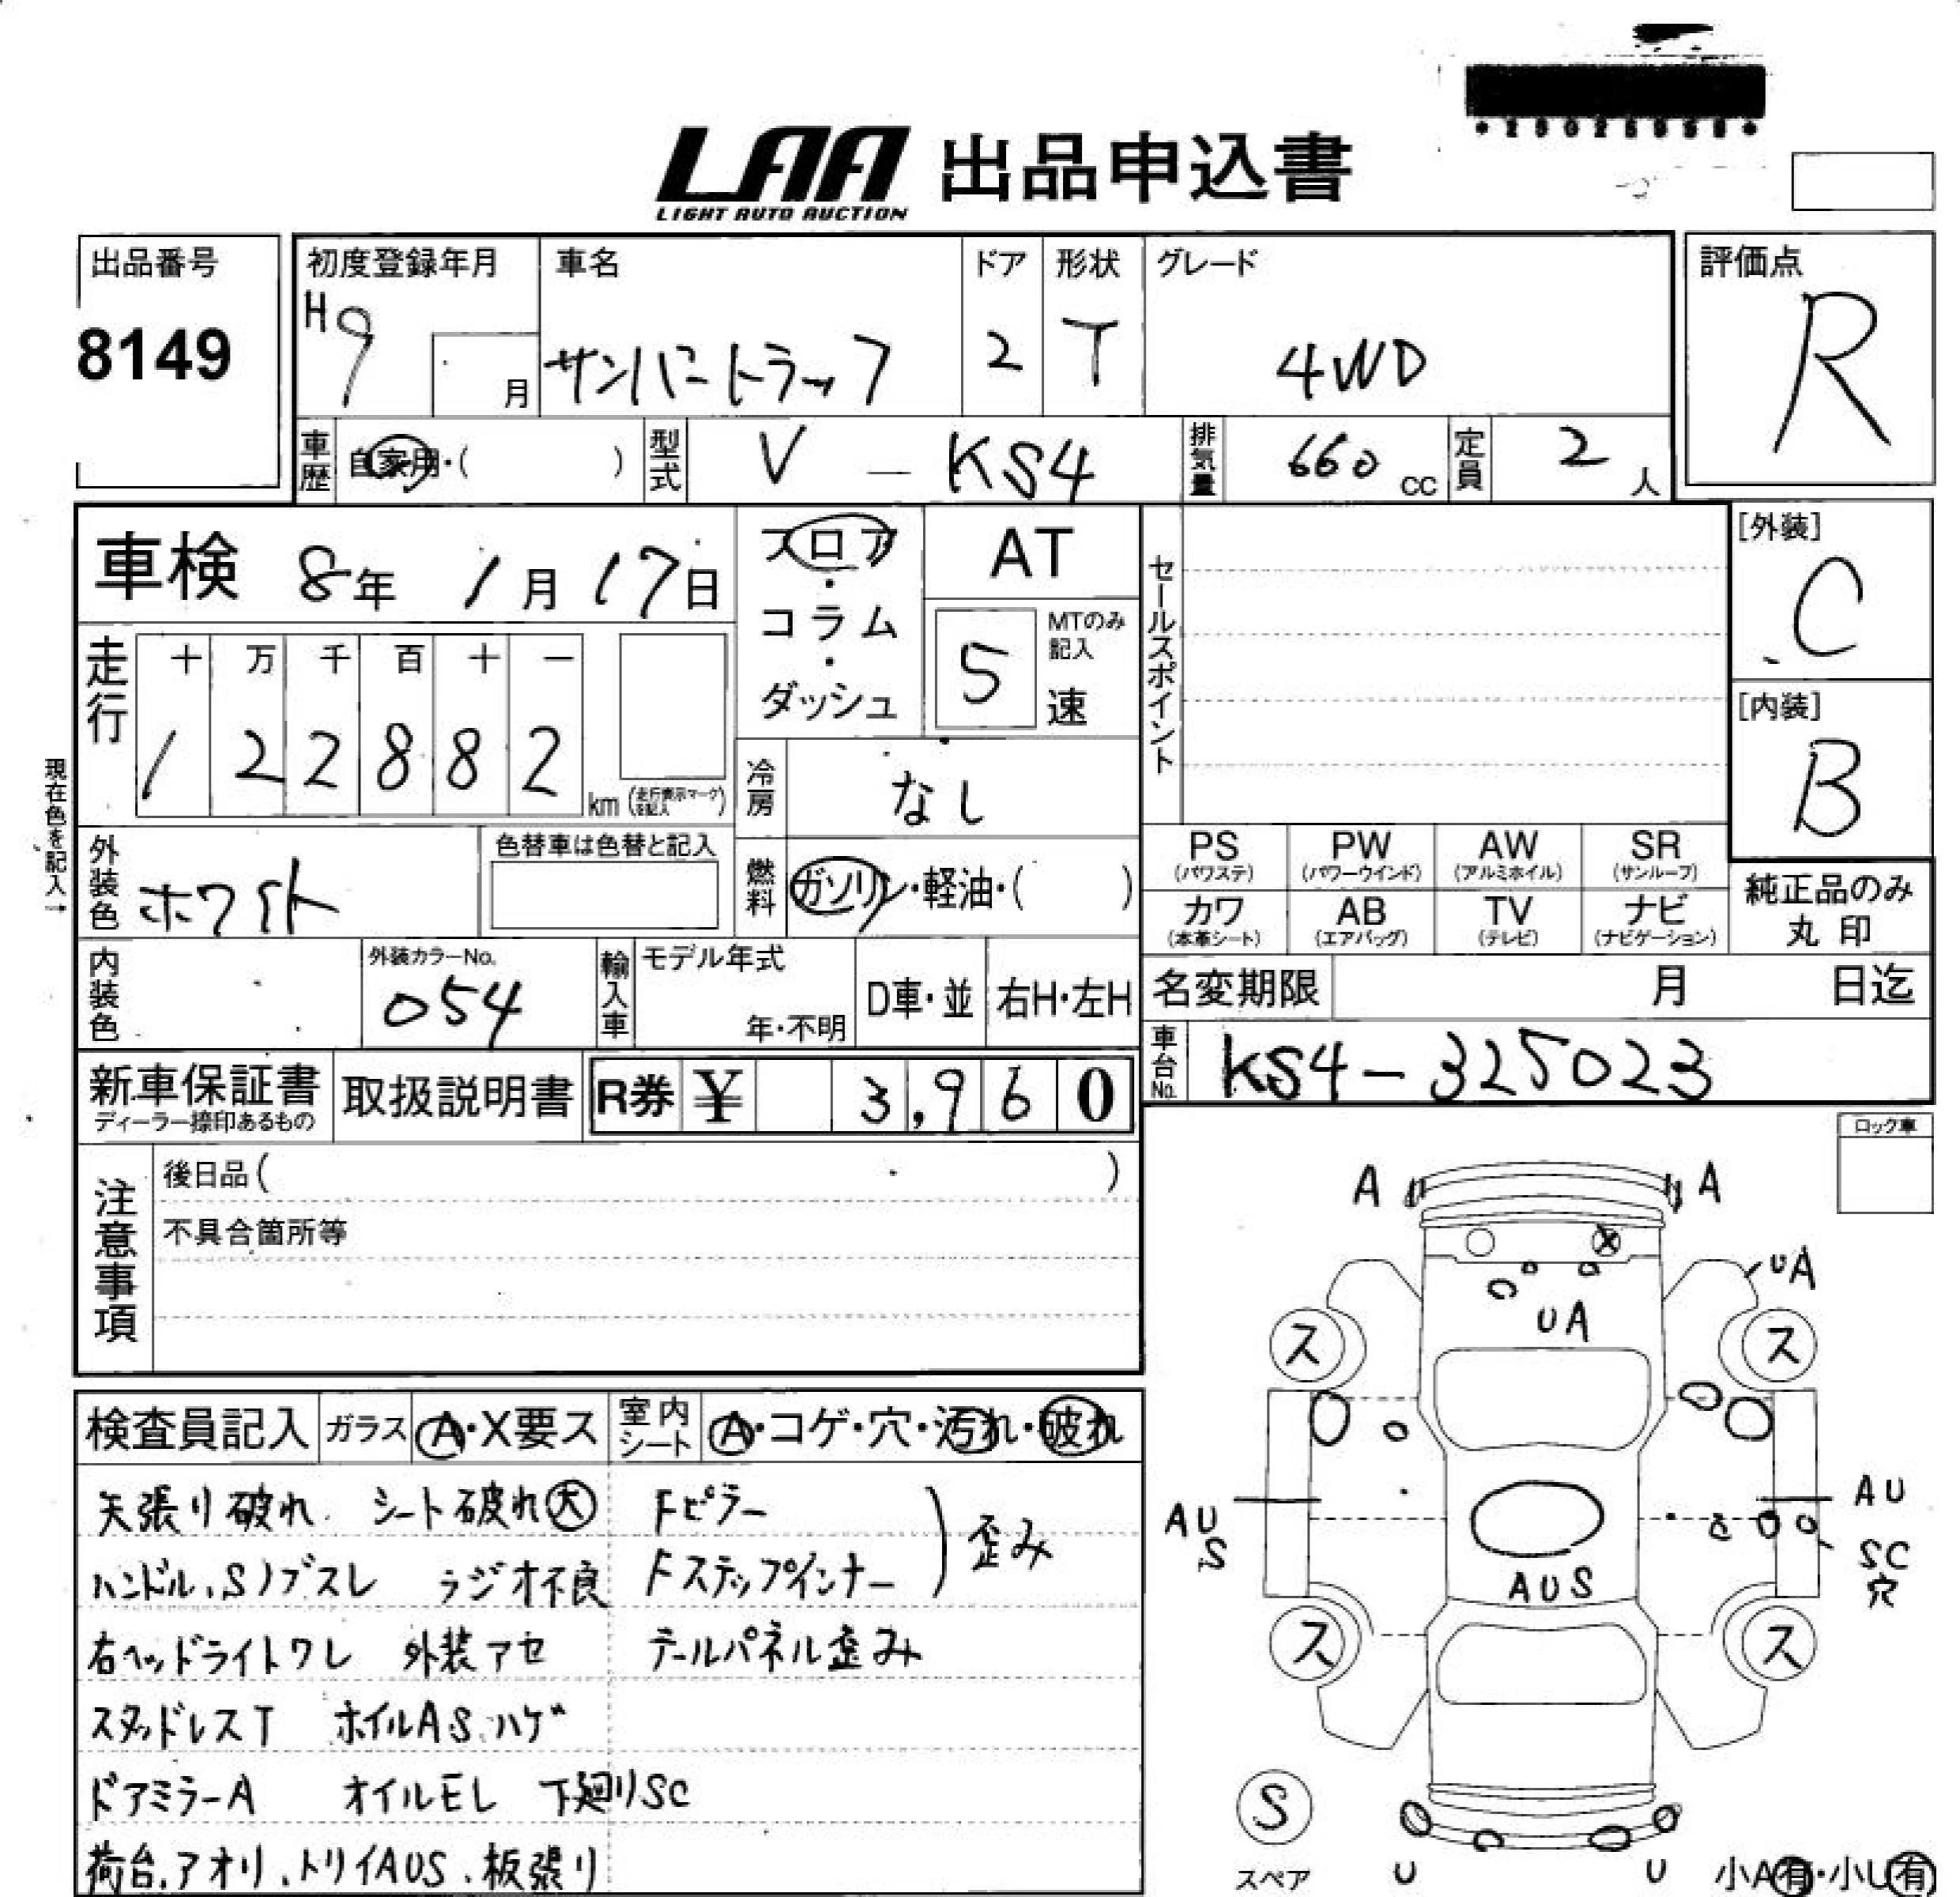 LAA 出品申込書
LIGHT AUTO AUCTION
出品番号
8149
初度登録年月
H9
月
車名
サンバートラック
ドア
2
形状
T
グレード
4WD
評価点
R
車歴 自家用・( )
型式 V - KS4
排気量 660 cc
定員 2 人
車検 8年 1月 17日
フロア・コラム・ダッシュ
AT
MTのみ記入
5 速
セールスポイント
[外装]
C
[内装]
B
走行
十 万 千 百 十 一
1 2 2 8 8 2
km (走行表示マークを記入)
現在色を記入→
冷房 なし
外装色 ホワイト
色替車は色替と記入
燃料 ガソリン・軽油・( )
PS (パワステ)
PW (パワーウインド)
AW (アルミホイル)
SR (サンルーフ)
カワ (本革シート)
AB (エアバッグ)
TV (テレビ)
ナビ (ナビゲーション)
純正品のみ
丸印
内装色
外装カラーNo.
054
輸入車
モデル年式
年・不明
D車・並
右H・左H
名変期限 月 日迄
車台No. KS4-325023
新車保証書
ディーラー捺印あるもの
取扱説明書
R券 ¥ 3,960
ロック車
注意事項
後日品( )
不具合箇所等
検査員記入
ガラス A・X要ス
室内シート A・コゲ・穴・汚れ・破れ
天張り破れ シート破れ大 Fピラー
ハンドル、Sノブスレ ラジオ不良 Fステップインナー ) 歪み
右ヘッドライトワレ 外装アセ テールパネル歪み
スタッドレスT ホイルAS、ハゲ
ドアミラーA オイルEL 下廻りSC
荷台、アオリ、トリイAUS、板張り
A A
UA
UA
ス ス
AUS
AU
SC
穴
AUS
ス ス
S
スペア
U U
小A有・小U有